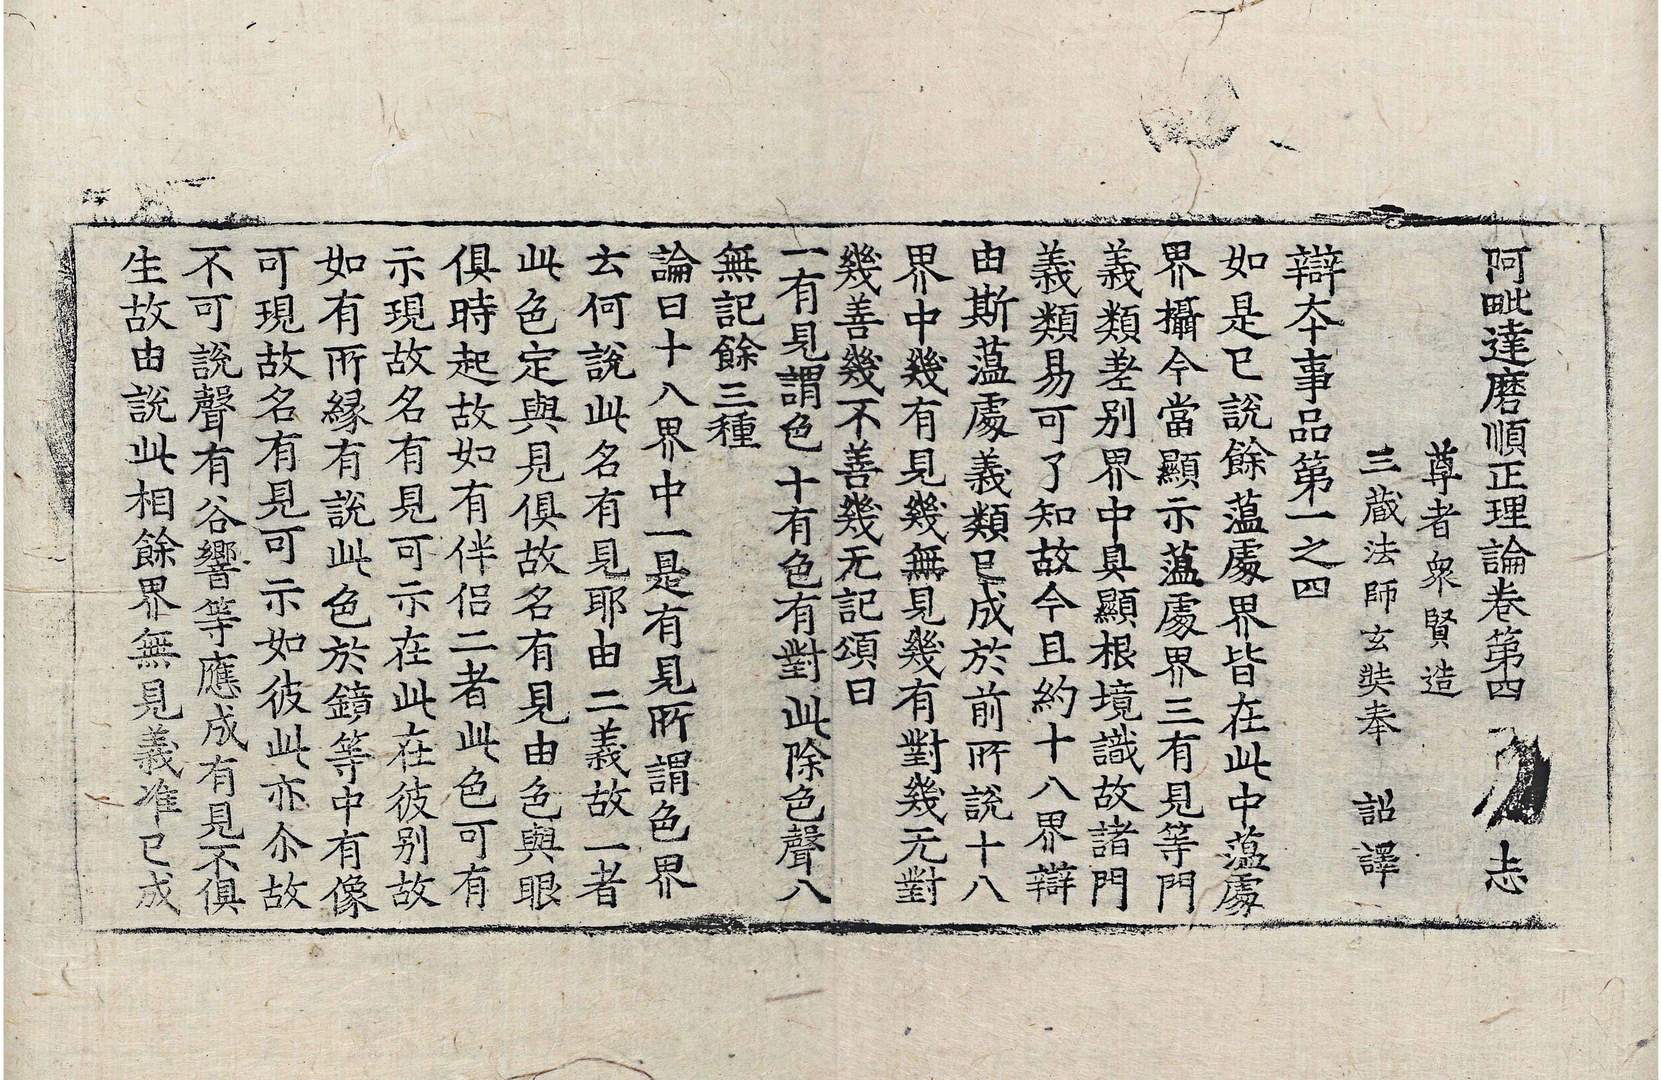 阿毗達磨順正理論卷第四 志
尊者衆賢造
三藏法師玄奘奉 詔譯
辯夲事品第一之四
如是已說餘蕰處界皆在此中蕰處
界攝今當顯示蕰處界三有見等門
義類差別界中具顯根境識故諸門
義類易可了知故今且約十八界辯
由斯蕰處義類已成於前所說十八
界中幾有見幾無見幾有對幾无對
幾善幾不善幾无記頌曰
一有見謂色 十有色有對 此除色聲八
無記餘三種
論曰十八界中一是有見所謂色界
云何說此名有見耶由二義故一者
此色定與見俱故名有見由色與眼
俱時起故如有伴侶二者此色可有
示現故名有見可示在此在彼别故
如有所縁有說此色於鏡等中有像
可現故名有見可示如彼此亦尒故
不可說聲有谷響等應成有見不俱
生故由說此相餘界無見義准已成